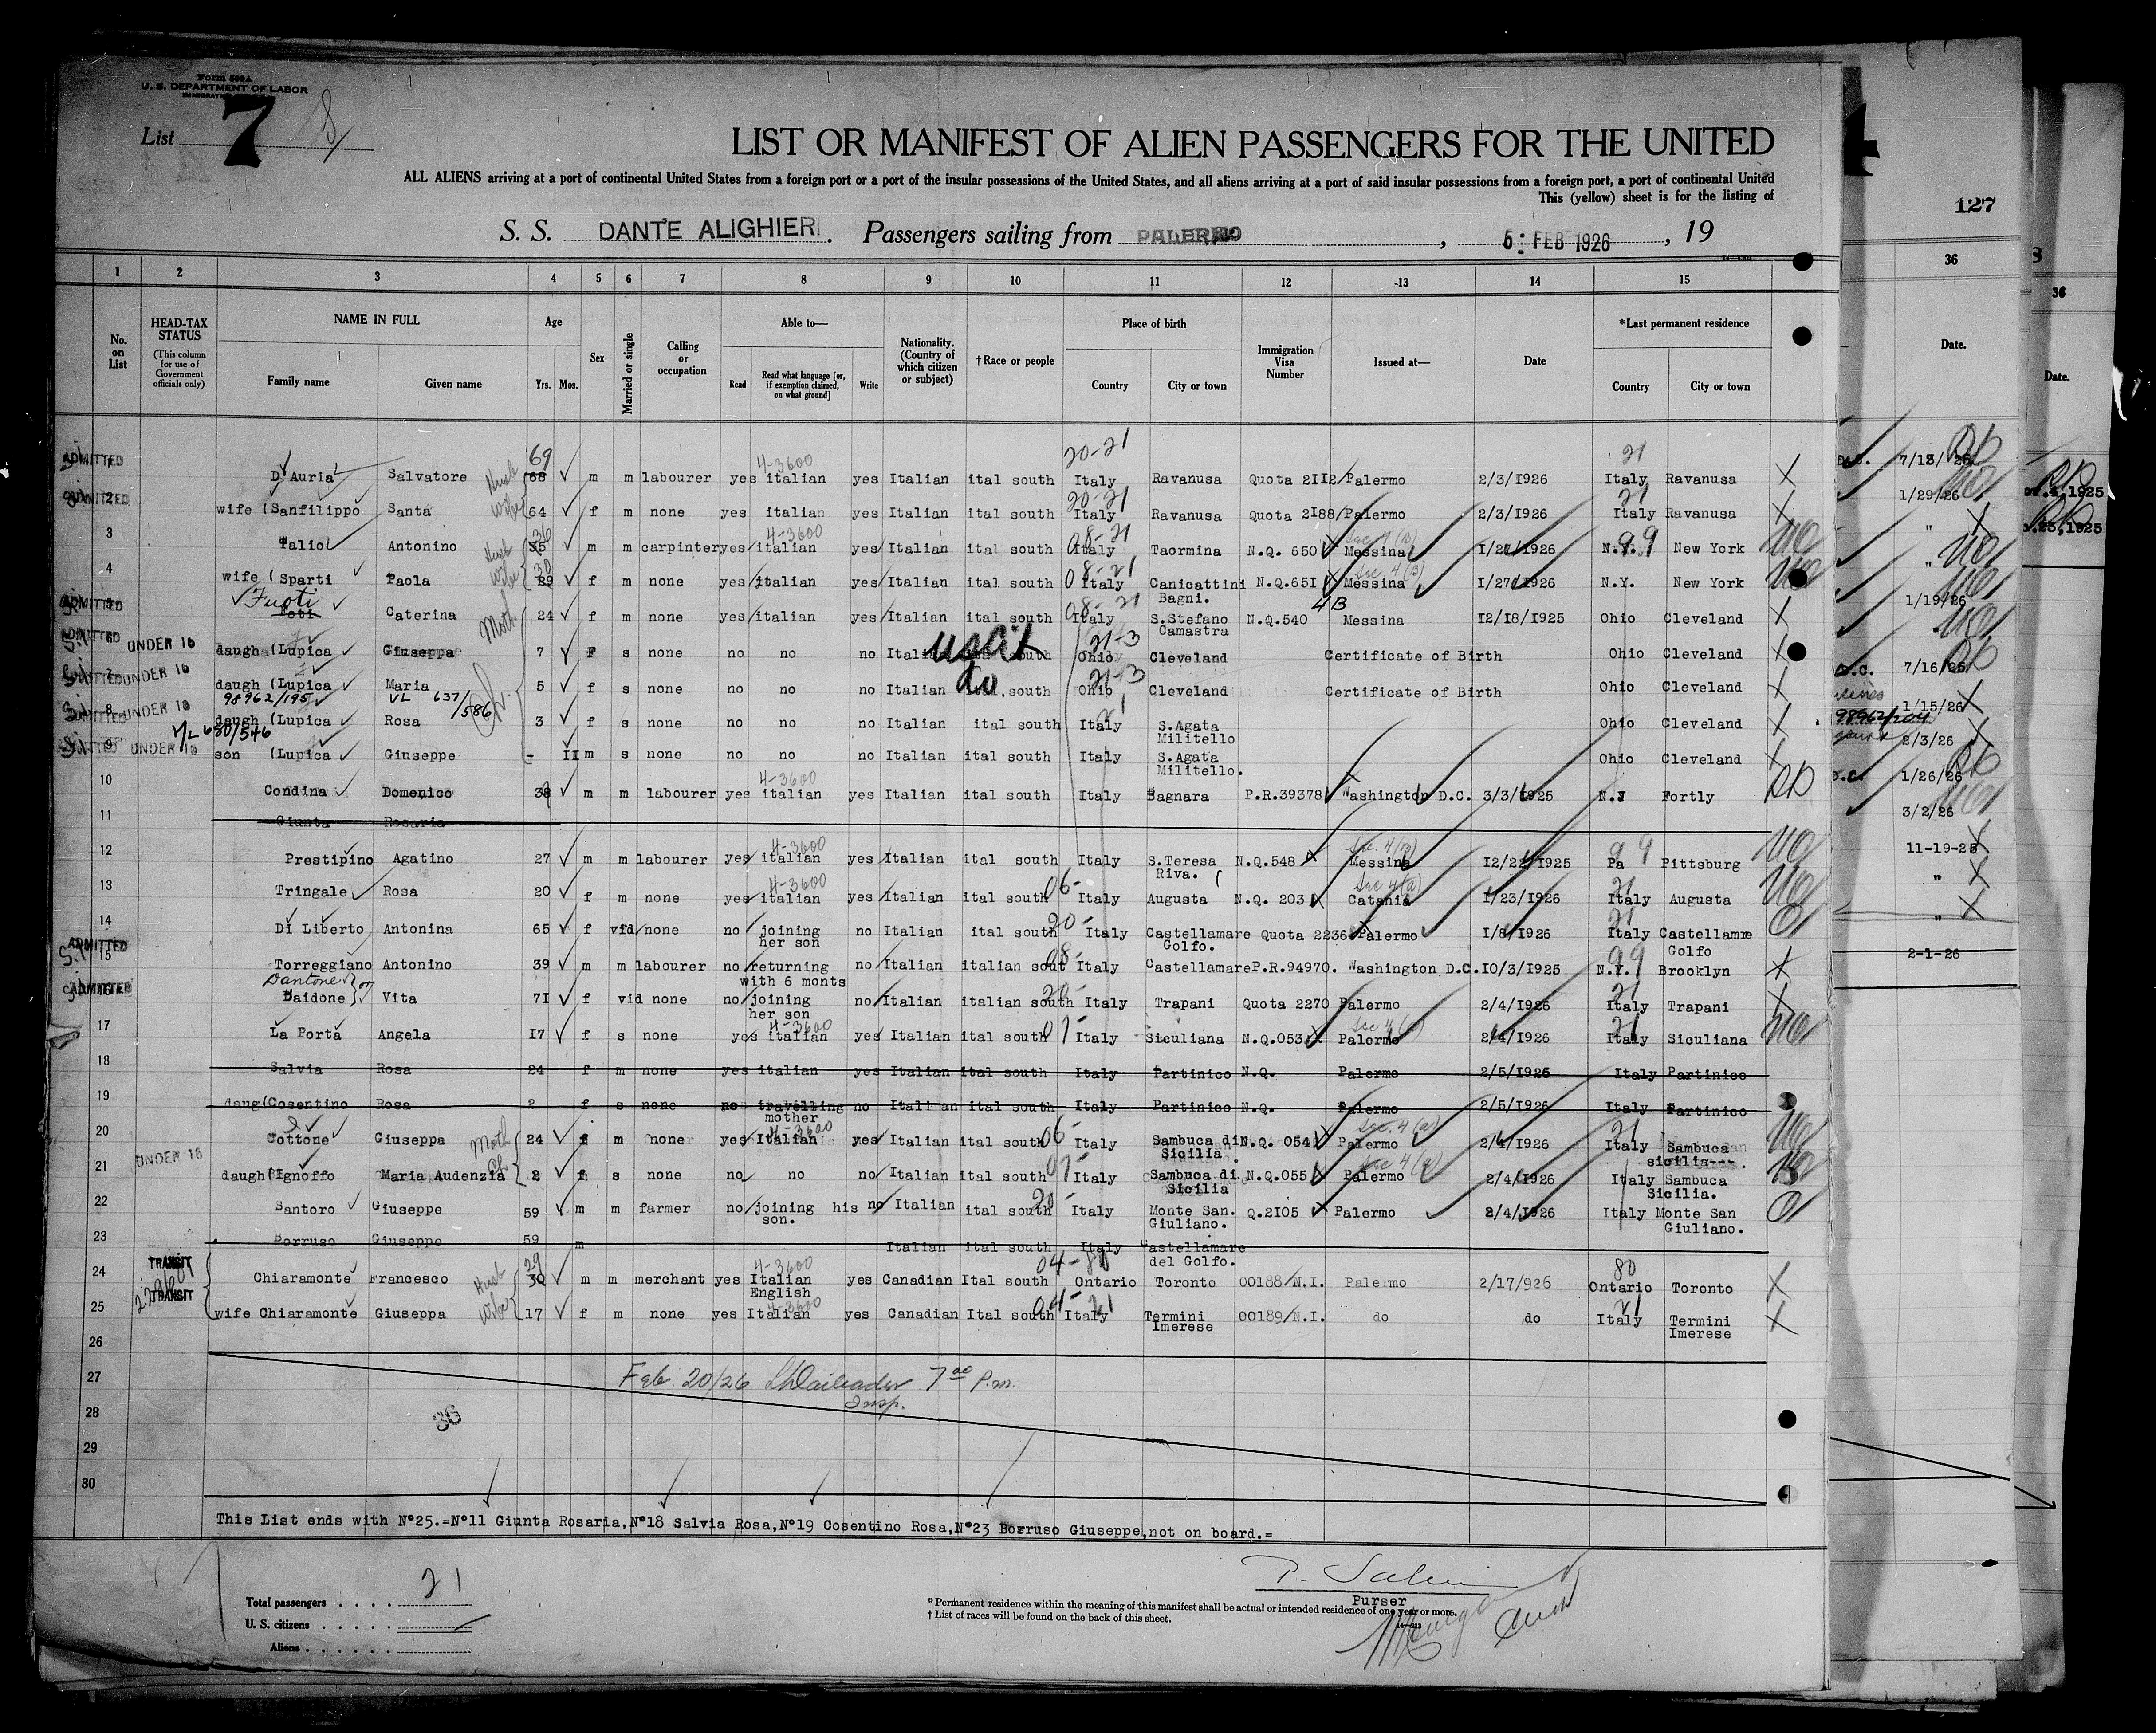 Form 500A
U. S. DEPARTMENT OF LABOR
List 7
LIST OR MANIFEST OF ALIEN PASSENGERS FOR THE UNITED
ALL ALIENS arriving at a port of continental United States from a foreign port or a port of the insular possessions of the United States, and all aliens arriving at a port of said insular possessions from a foreign port, a port of continental United
This (yellow) sheet is for the listing of
S. S. DANTE ALIGHIERI. Passengers sailing from PALERMO, 6: FEB 1926, 19
127
1 2 3 4 5 6 7 8 9 10 11 12 13 14 15 36 36
No. on List
HEAD-TAX STATUS (This column for use of Government officials only)
NAME IN FULL Family name Given name
Age Yrs. Mos.
Sex
Married or single
Calling or occupation
Able to— Read Read what language [or, if exemption claimed, on what ground] Write
Nationality. (Country of which citizen or subject)
†Race or people
Place of birth Country City or town
Immigration Visa Number
Issued at—
Date
*Last permanent residence Country City or town
Date.
Date.
ADMITTED 1 D'Auria Salvatore Husb 69 68 m m labourer yes 4-3600 italian yes Italian ital south 20-21 Italy Ravanusa Quota 2112 Palermo 2/3/1926 21 Italy Ravanusa X 7/13/26
ADMITTED 2 wife (Sanfilippo Santa Wife 64 f m none yes italian yes Italian ital south 20-21 Italy Ravanusa Quota 2188 Palermo 2/3/1926 21 Italy Ravanusa X 1/29/26
3 Talio Antonino Husb 36 35 m m carpinter yes 4-3600 italian yes Italian ital south 08-21 Italy Taormina N.Q. 650 Messina 1/27/1926 99 N.Y. New York
4 wife (Sparti Paola Wife 30 29 f m none yes italian yes Italian ital south 08-21 Italy Canicattini Bagni. N.Q.651 Messina 1/27/1926 N.Y. New York 1/19/26
ADMITTED 5 Fuoti Foti Caterina Moth 24 f m none yes italian yes Italian ital south 08-21 Italy S.Stefano Camastra N.Q.540 4B Messina 12/18/1925 Ohio Cleveland X
ADMITTED 6 UNDER 16 daugh (Lupica Giuseppa 7 F s none no no no Italian uscit ital south 21-3 Ohio Cleveland Certificate of Birth Ohio Cleveland X 7/16/25
ADMITTED 7 UNDER 16 daugh (Lupica Maria 5 f s none no no no Italian do ital south 21-3 Ohio Cleveland Certificate of Birth Ohio Cleveland X 1/15/26
98962/195 VL 637/586
ADMITTED 8 UNDER 16 daugh (Lupica Rosa 3 f s none no no no Italian ital south Italy S.Agata Militello Ohio Cleveland X 98962/204 2/3/26
V/L 680/546
ADMITTED 9 UNDER 16 son (Lupica Giuseppe - 11 m s none no no no Italian ital south Italy S.Agata Militello. Ohio Cleveland X 1/26/26
10 Condina Domenico 38 m m labourer yes 4-3600 italian yes Italian ital south Italy Bagnara P.R.39378 Washington D.C. 3/3/1925 N.J Fortly 3/2/26
11 Giunta Rosaria
12 Prestipino Agatino 27 m m labourer yes 4-3600 italian yes Italian ital south Italy S.Teresa Riva. N.Q.548 Messina 12/22/1925 99 Pa Pittsburg 11-19-25
13 Tringale Rosa 20 f m none yes 4-3600 italian yes Italian ital south 06- Italy Augusta N.Q. 203 Sec 4(a) Catania 1/23/1926 21 Italy Augusta "
14 Di Liberto Antonina 65 f vid none no joining her son no Italian ital south 20- Italy Castellamare Golfo. Quota 2236 Palermo 1/8/1926 21 Italy Castellamre Golfo "
ADMITTED 15 Torreggiano Antonino 39 m m labourer no returning with 6 monts no Italian italian sout 08- Italy Castellamare P.R.94970. Washington D.C. 10/3/1925 99 N.Y. Brooklyn X 2-1-26
ADMITTED 16 Dantone or Daidone Vita 71 f vid none no joining her son no Italian italian south 20- Italy Trapani Quota 2270 Palermo 2/4/1926 21 Italy Trapani X
17 La Porta Angela 17 f s none yes 4-3600 italian yes Italian ital south 07- Italy Siculiana N.Q.053 Palermo 2/4/1926 21 Italy Siculiana
18 Salvia Rosa 24 f m none yes italian yes Italian ital south Italy Partinico N.Q. Palermo 2/5/1926 Italy Partinico
19 daug(Cosentino Rosa 2 f s none no travelling mother no Italian ital south Italy Partinico N.Q. Palermo 2/5/1926 Italy Partinico
20 Cottone Giuseppa Moth 24 f m none yes 4-3600 Italian yes Italian ital south 06- Italy Sambuca di Sicilia. N.Q. 054 Sec. 4(a) Palermo 2/4/1926 21 Italy Sambuca sicilia---.
21 UNDER 16 daugh(Ignoffo Maria Audenzia Ch. 2 f s none no no no Italian ital south 07- Italy Sambuca di Sicilia N.Q.055 Sec 4(a) Palermo 2/4/1926 Italy Sambuca Sicilia.
22 Santoro Giuseppe 59 m m farmer no joining his son. no Italian ital south 20- Italy Monte San. Giuliano. Q.2105 Palermo 2/4/1926 Italy Monte San Giuliano.
23 Borruso Giuseppe 59 m Italian ital south Italy Castellamare del Golfo.
TRANSIT 24 Chiaramonte Francesco Husb 29 30 m m merchant yes 4-3600 Italian English yes Canadian Ital south 04-80 Ontario Toronto 00188/N.I. Palermo 2/17/926 80 Ontario Toronto X
TRANSIT 25 wife Chiaramonte Giuseppa Wife 17 f m none yes 4-3600 Italian yes Canadian Ital south 04-21 Italy Termini Imerese 00189/N.I. do do 21 Italy Termini Imerese X
26
27 Feb. 20/26 7 00 P.m.
Insp.
28 36
29
30
This List ends with N°25.=N°11 Giunta Rosaria,N°18 Salvia Rosa,N°19 Cosentino Rosa,N°23 Borruso Giuseppe,not on board.=
Total passengers . . . . 21
U. S. citizens . . . . .
Aliens . . . . . .
Purser
* Permanent residence within the meaning of this manifest shall be actual or intended residence of one year or more.
† List of races will be found on the back of this sheet.